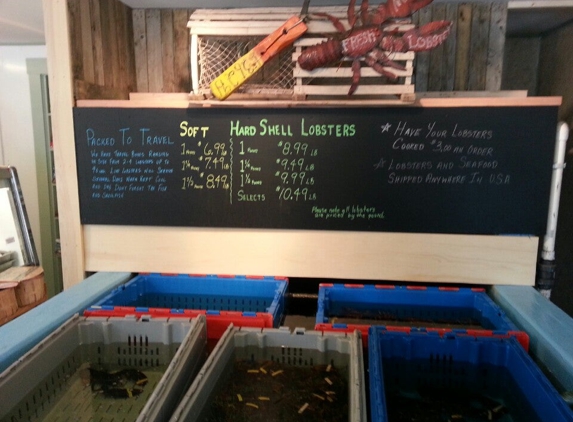 FRESH LOBSTER
PACKED TO TRAVEL
WE HAVE TRAVEL BOXES RANGING
IN SIZE FROM 2-4 LOBSTERS UP TO
SOFT
1 POUND $6.99 LB
1¼ POUND $7.49 LB
1½ POUND $8.49 LB
HARD SHELL LOBSTERS
1 POUND $8.99 LB
1¼ POUND $9.49 LB
1½ POUND $9.99 LB
SELECTS $10.49 LB
Please note all lobsters
are priced by the pound.
HAVE YOUR LOBSTERS
COOKED $3.00 AN ORDER
LOBSTERS AND SEAFOOD
SHIPPED ANYWHERE IN USA